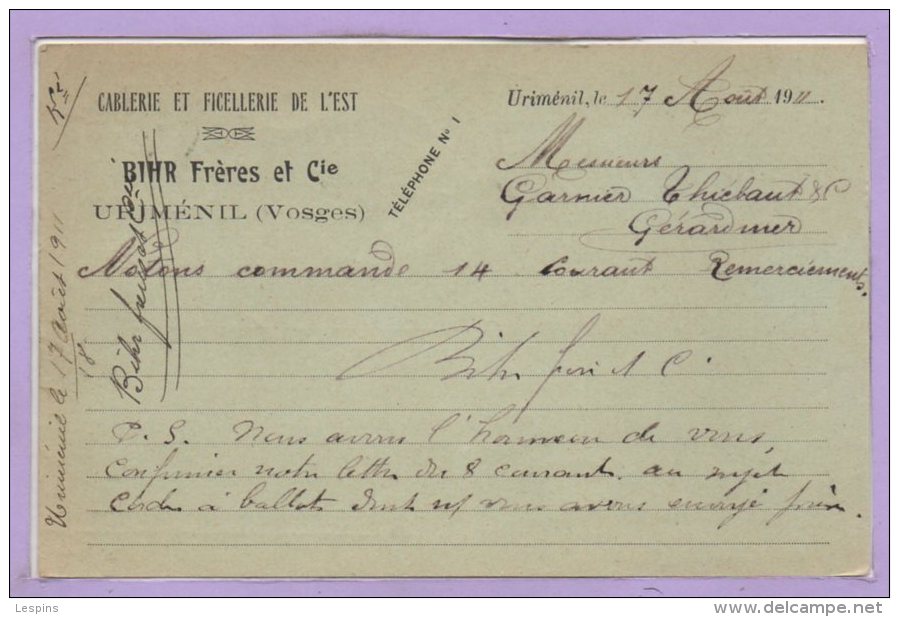 CABLERIE ET FICELLERIE DE L'EST
BIHR Frères et Cie
URIMÉNIL (Vosges)
TÉLÉPHONE No 1
Uriménil, le 17 Août 1911.
Messieurs
Garnier Thiébaut & C
Gérardmer
Notons commande 14 Courant Remerciements.
Bihr frères & Ci
P. S. Nous avons l'honneur de vous
Confirmer notre lettre du 8 courant au sujet
Cordes à ballots dont nous vous avons envoyé
Uriménil le 17 Août 1911
18
Bihr frères & Cie
Lespins
delcampe.net